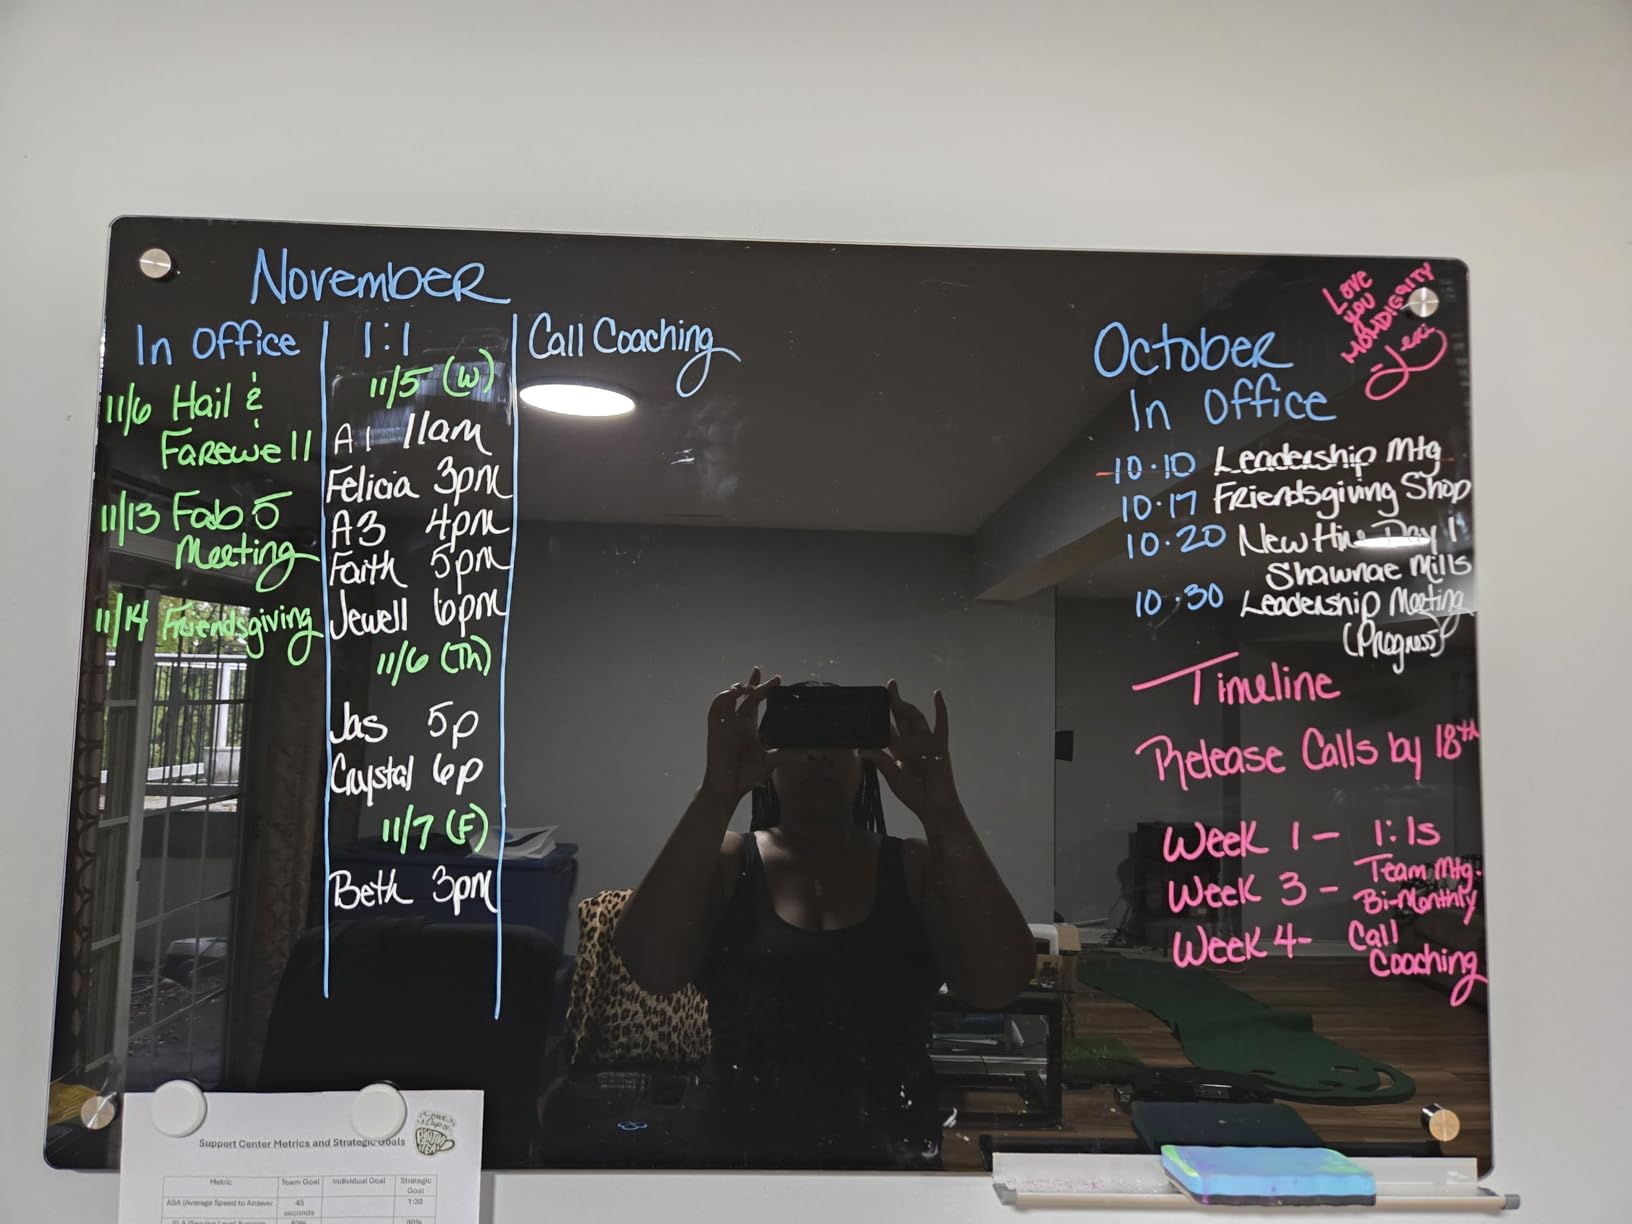 November
In Office
11/6 Hail &
Farewell
11/13 Fab 5
Meeting
11/14 Friendsgiving
1:1
11/5 (W)
A1 11am
Felicia 3pm
A3 4pm
Faith 5pm
Jewell 6pm
11/6 (Th)
Jas 5p
Crystal 6p
11/7 (F)
Beth 3pm
Call Coaching
Love
you
MOMDIGGITY
October
In Office
10.10 Leadership Mtg
10.17 Friendsgiving Shop
10.20 New Hire Day 1
Shawnae Mills
10.30 Leadership Meeting
(Progress)
Timeline
Release Calls by 18th
Week 1 - 1:1s
Week 3 - Team Mtg.
Bi-Monthly
Week 4- Call
Coaching
Support Center Metrics and Strategic Goals
Metric Team Goal Individual Goal Strategic
Goal
ASA (Average Speed to Answer 45
seconds 1:30